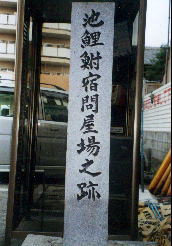 池鯉鮒宿問屋場之跡